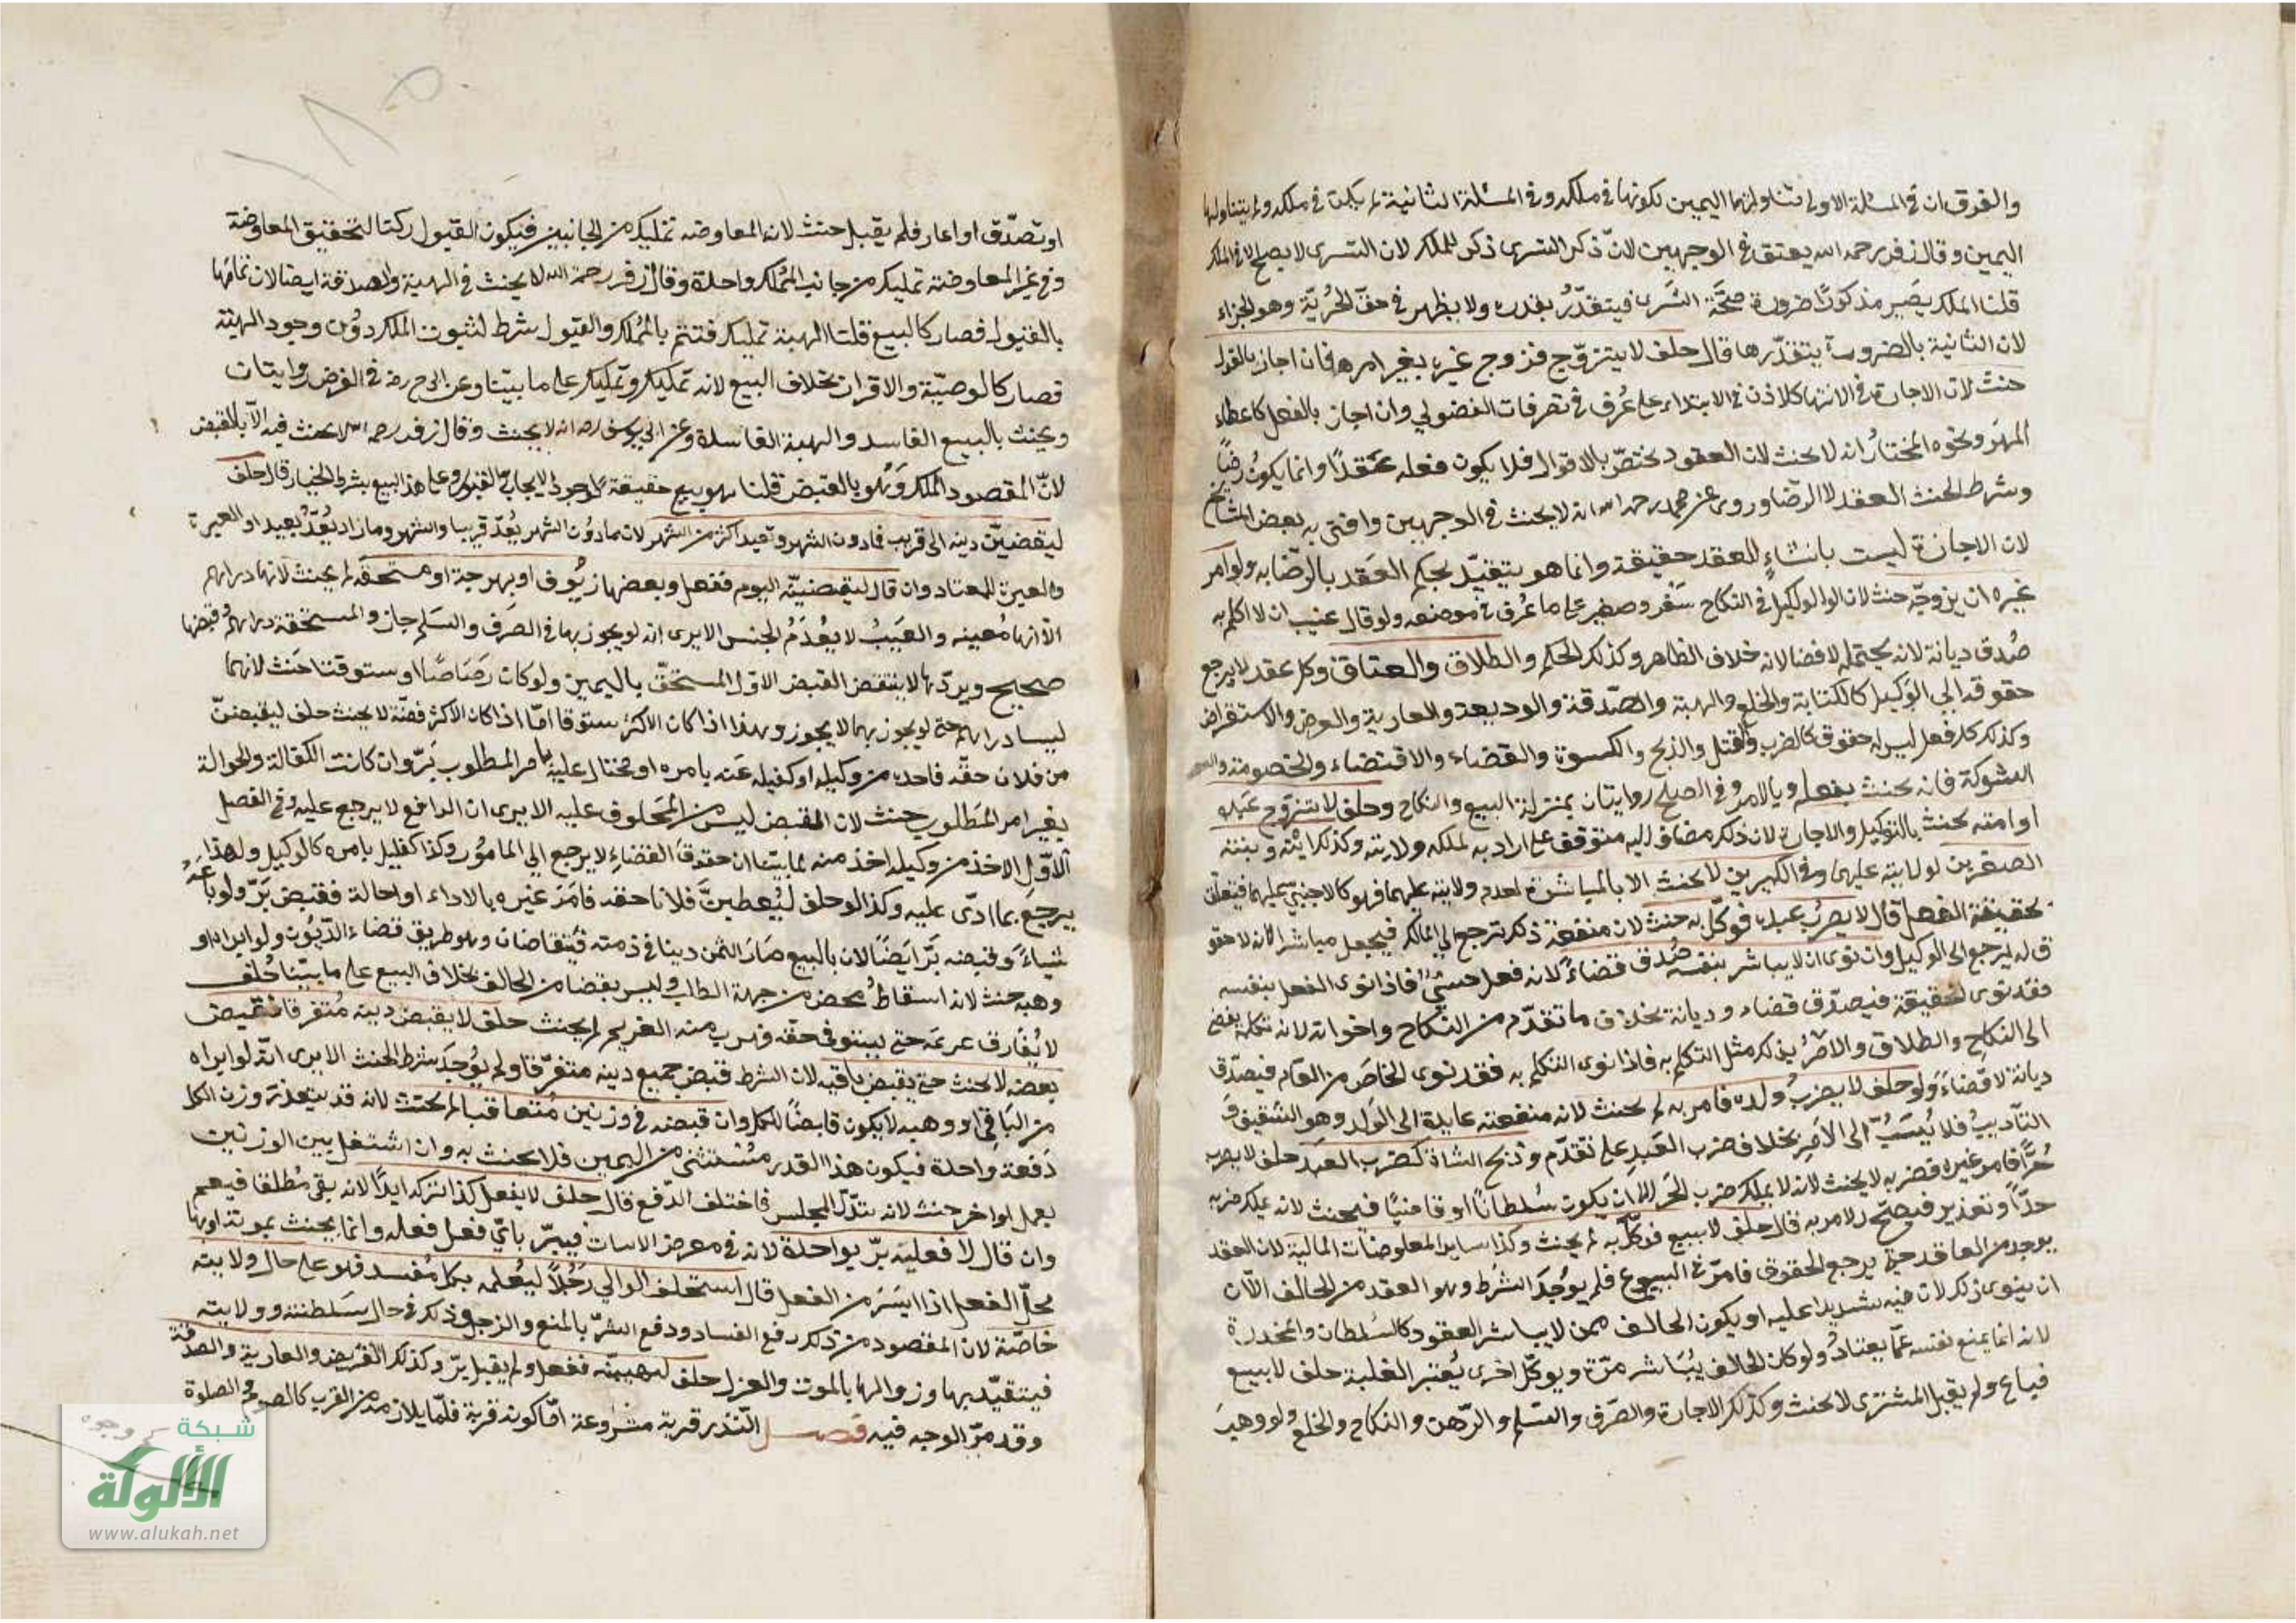 والفرق ان في المسئلة الاولى تناولتها اليمين لكونها في ملكه وفي المسئلة الثانية لم يكن في ملكه ولم يتناولها
اليمين وقال زفر رحمه الله يعتق في الوجهين لان ذكر التسري ذكر للملك لان التسري لا يصح الا في الملك
قلنا الملك يصير مذكورًا ضرورة صحّة التسري فيتقدّر بقدره ولا يظهر في حق الحُريّة وهو الجزاء
لان الثابت بالضرورة يتقدّر بقدرها قال حلف لا يتزوّج فزوج غيره بغير امره فان اجاز بالقول
حنث لان الاجازة في الانتهاء كالاذن في الابتداء على عُرف في تصرفات الفضولي وان اجاز بالفعل كاعطاء
المهر ونحوه المختارُ انه لا يحنث لان العقود تختصّ بالاقوال فلا يكون فعله عقدًا وانما يكون رضًا
وشرط الحنث العقد لا الرّضا وروى عن محمد رحمه الله انه لا يحنث في الوجهين وافتى به بعض المشايخ
لان الاجازة ليست بانشاءٍ للعقد حقيقة وانما هو يتقيّد بحكم العقد بالرّضا به ولو امر
غيره ان يزوجّه حنث لان الوكيل في النكاح سَفير ومعبر على ما عُرف في موضعه ولو قال عنيت ان لا اتكلم به
صُدق ديانة لانه يحتمله لا قضاء لانه خلاف الظاهر وكذلك الحكم والطلاق والعتاق وكل عقد لا يرجع
حقوقه الى الوَكيل كالكتابة والخلع والهبة والصّدقة والوديعة والعارية والقرض والاستقراض
وكذلك كل فعل ليس له حقوق كالضرب والقتل والذبح والكسوة والقضاء والاقتضاء والخصومة
الشركة فانه يحنث بفعله وبالامر وفي الصلح روايتان بمنزلة البيع والنكاح وحلف لا يتزوج عبده
او امته يحنث بالتوكيل والاجازة لان ذلك مضاف اليه متوقف على ارادته لملكه وولايته وكذلك ابنه وبنته
الصغيرين لولايته عليهما وفي الكبيرين لا يحنث الا بالمباشرة لعدم ولايته عليهما فهو كالاجنبيّ عليهما فيتعلق
بحقيقة الفعل قال لا يضربُ عبده فوكّل به حنث لان منفعة ذلك ترجع الى المالك فيجعل مباشرًا لانه لا حقو
ق له يرجع الى الوكيل وان نوى ان لا يباشر بنفسه صُدق قضاءً لانه فعل حسّيّ فاذا نوى الفعل بنفسه
فقد نوى الحقيقة فيصدّق قضاء وديانة بخلاف ما تقدّم من النكاح واخواته لانه تكلم يفضي
الى النكاح والطلاق والامرُ بذلك مثل التكلم به فاذا نوى التكلم به فقد نوى الخاصّ من العام فيصدّق
ديانة لا قضاءً ولو حلف لا يضربُ ولده فامر به لم يحنث لانه منفعته عايدة الى الوَلد وهو التثقيف و
التأديبُ فلا يُنسبُ الى الآمِر بخلاف ضرب العَبدِ على تقدّم وذبح الشاة كضرب العَبد حلف لا يضرب
حُرًّا فامر غيره فضربه لا يحنث لانه لا يملك ضرب الحر الا ان يكون سُلطانًا او قاضيًا فيحنث لانه يملك ضربه
حدًّا وتعزير فيصحّ الامر به قال حلف لا يبيع فوكّل به لم يحنث وكذا ساير المعاوضات المالية لان العقد
يوجد من العاقد حتى يرجع الحقوق فامرّ في البيوع فلم يوُجد الشرط وهو العقد من الحالف الّا
ان ينوي ذلك لان فيه تشديدا عليه او يكون الحالف ممن لا يباشر العقود كالسُلطان والمخدرة
لانه انما يمنع نفسه عمّا يعتادُ ولو كان الحالف يُبَاشر مرّة ويوكّل اخرى يُعتبر الغلبة حلف لا يبيع
فباع ولم يقبل المشتري لا يحنث وكذلك الاجارة والصّرف والسّلم والرّهن والنكاح والخلع ولو وهبَ
او تصدّق او اعار فلم يقبل حنث لان المعاوضة تمليك من الجانبين فيكون القبول ركنا لتحقيق المعاوضة
وفي غير المعاوضة تمليك من جانب المُملك واحدة وقال زفر رحمه الله لا يحنث في الهبة والصدقة ايضا لان تمامها
بالقبول فصار كالبيع قلنا الهبة تمليك فتتم بالمُملك والقبول شرط لثبوت الملك دوُن وجود الهبة
فصار كالوصيّة والاقرار بخلاف البيع لانه تمليك وتمليك على ما بيّنا وعن ابي ح رضه في القرض روايتان
ويحنث بالبيع الفاسد والهبة الفاسدة وعن ابي يوسف رحه انه لا يحنث وقال زفر رحمه الله لا يحنث فيه الّا بالقبض
لانّ المقصود الملك وَهُو بالقبض قلنا هو بيع حقيقة لوجود الايجاب والقبول وعلى هذا البيع بشرط الخيار قال حلف
ليقضينّ دينه الى قريب فما دون الشهر وبعيد اكثر من الشهر لان ما دوُن الشهر يُعدّ قريبا والشهر وما زاد يُعدّ بعيد او العبرة
والعبرة للمعتاد وان قال ليقضينّه اليوم ففعل وبعضها زيُوف او بهرجة او مستحقّة لم يحنث لانها دراهم
الّا انها مُعيبه والعَيبُ لا يعُدَمُ الجنس الا يرى انه لو يجوز بها في الصَرف والسَلم جاز والمستحقة دراهم وقبضها
صحيح ويردّها لا ينتقض القبض الاوّل المستحقّ باليمين ولو كان رَصَاصًا او ستوقتا حَنث لانهما
ليسا دراهم حتى لو يجوز بهما لا يجوز وهذا اذا كان الاكثرُ ستوقا امّا اذا كان الاكثرُ فضّة لا يحنث حلف ليقبضنّ
من فلان حقّه فاخذه من وكيله او كفيله عَنه بامره او محتال عليه بامر المطلوب بَرّ وان كانت الكفالة والحوالة
بغير امر المَطلوب حنث لان القبض ليس من المحلوف عليه الا يرى ان الدافع لا يرجع عليه وفي الفصل
الاوّل الاخذ من وكيله اخذ منه لما بيّنا ان حقوق القضاءِ لا يرجع الى المامُور وكذا كفيل بامره كالوكيل ولهذا
يرجعَ بما ادّى عليه وكذا لو حلف ليُعطينَّ فلانا حقه فامَرَ غيره بالاداء او احالة فقبض بَرّ ولو باعَهُ
شياءً وقبضه بَرّ ايَضًا لان بالبيع صَارَ الثمن دينا في ذمته فيتقاصان وهو طريق قضاء الدّيُون ولو ابراه او
وهبه حنث لانه اسقاطُ محض من جهة الطالب وليس بقضا من الحالف بخلاف البيع على ما بيّنا حُلف
لا يُفارق غريمَه حتى يستوفى حقه فهرب منه الغريم لم يحنث حلف لا يقبض دينه مُتفرقا فقبض
بعضه لا يحنث حتى يقبض باقيه لان الشرط قبض جميع دينه متفرّقا ولم يوُجدَ شرط الحنث الا يرى انّه لو ابراه
من البَاقي او وهبه لا يكون قابضًا للكل وان قبضه في وزنين مُتعاقبا لم يحنث لانه قد يتعذرّ وزن الكل
دَفعةً وَاحدة فيكون هذا القدر مُستثنى من اليمين فلا يحنث به وان اشتغل بين الوزنين
بعمل اواخر حنث لانه تبدّل المجلس فاختلف الدّفع قال حلف لا يفعل كذا تركه ابدًا لانه بقى مُطلقا فيعم
وان قال لافعلنه برّ بواحدة لانه في معرض الاثبات فيبرّ باىّ فعل فعله وانما يحنث بموته او بها
محلّ الفعل اذا ايسَرَ من الفعل قال استحلف الوالي رَجُلًا ليُعلمه بكل مُفسد فهو على حال ولايته
خاصّة لان المقصود من ذلك رفع الفساد ودفع الشرّ بالمنع والزجر وذلك في حال سَلطنته وولايته
فيتقيّد بها وزوالها بالموت والعزل حلف ليهبنّه ففعل ولم يقبل برّ وكذلك القرض والعارية والصدقة
وقد مرّ الوجه فيه فصل النّذر قربة مشروعة امّا كونه قربة فلمّا يلازمه من القرب كالصوم والصلوة
شبكة
الألوكة
www.alukah.net